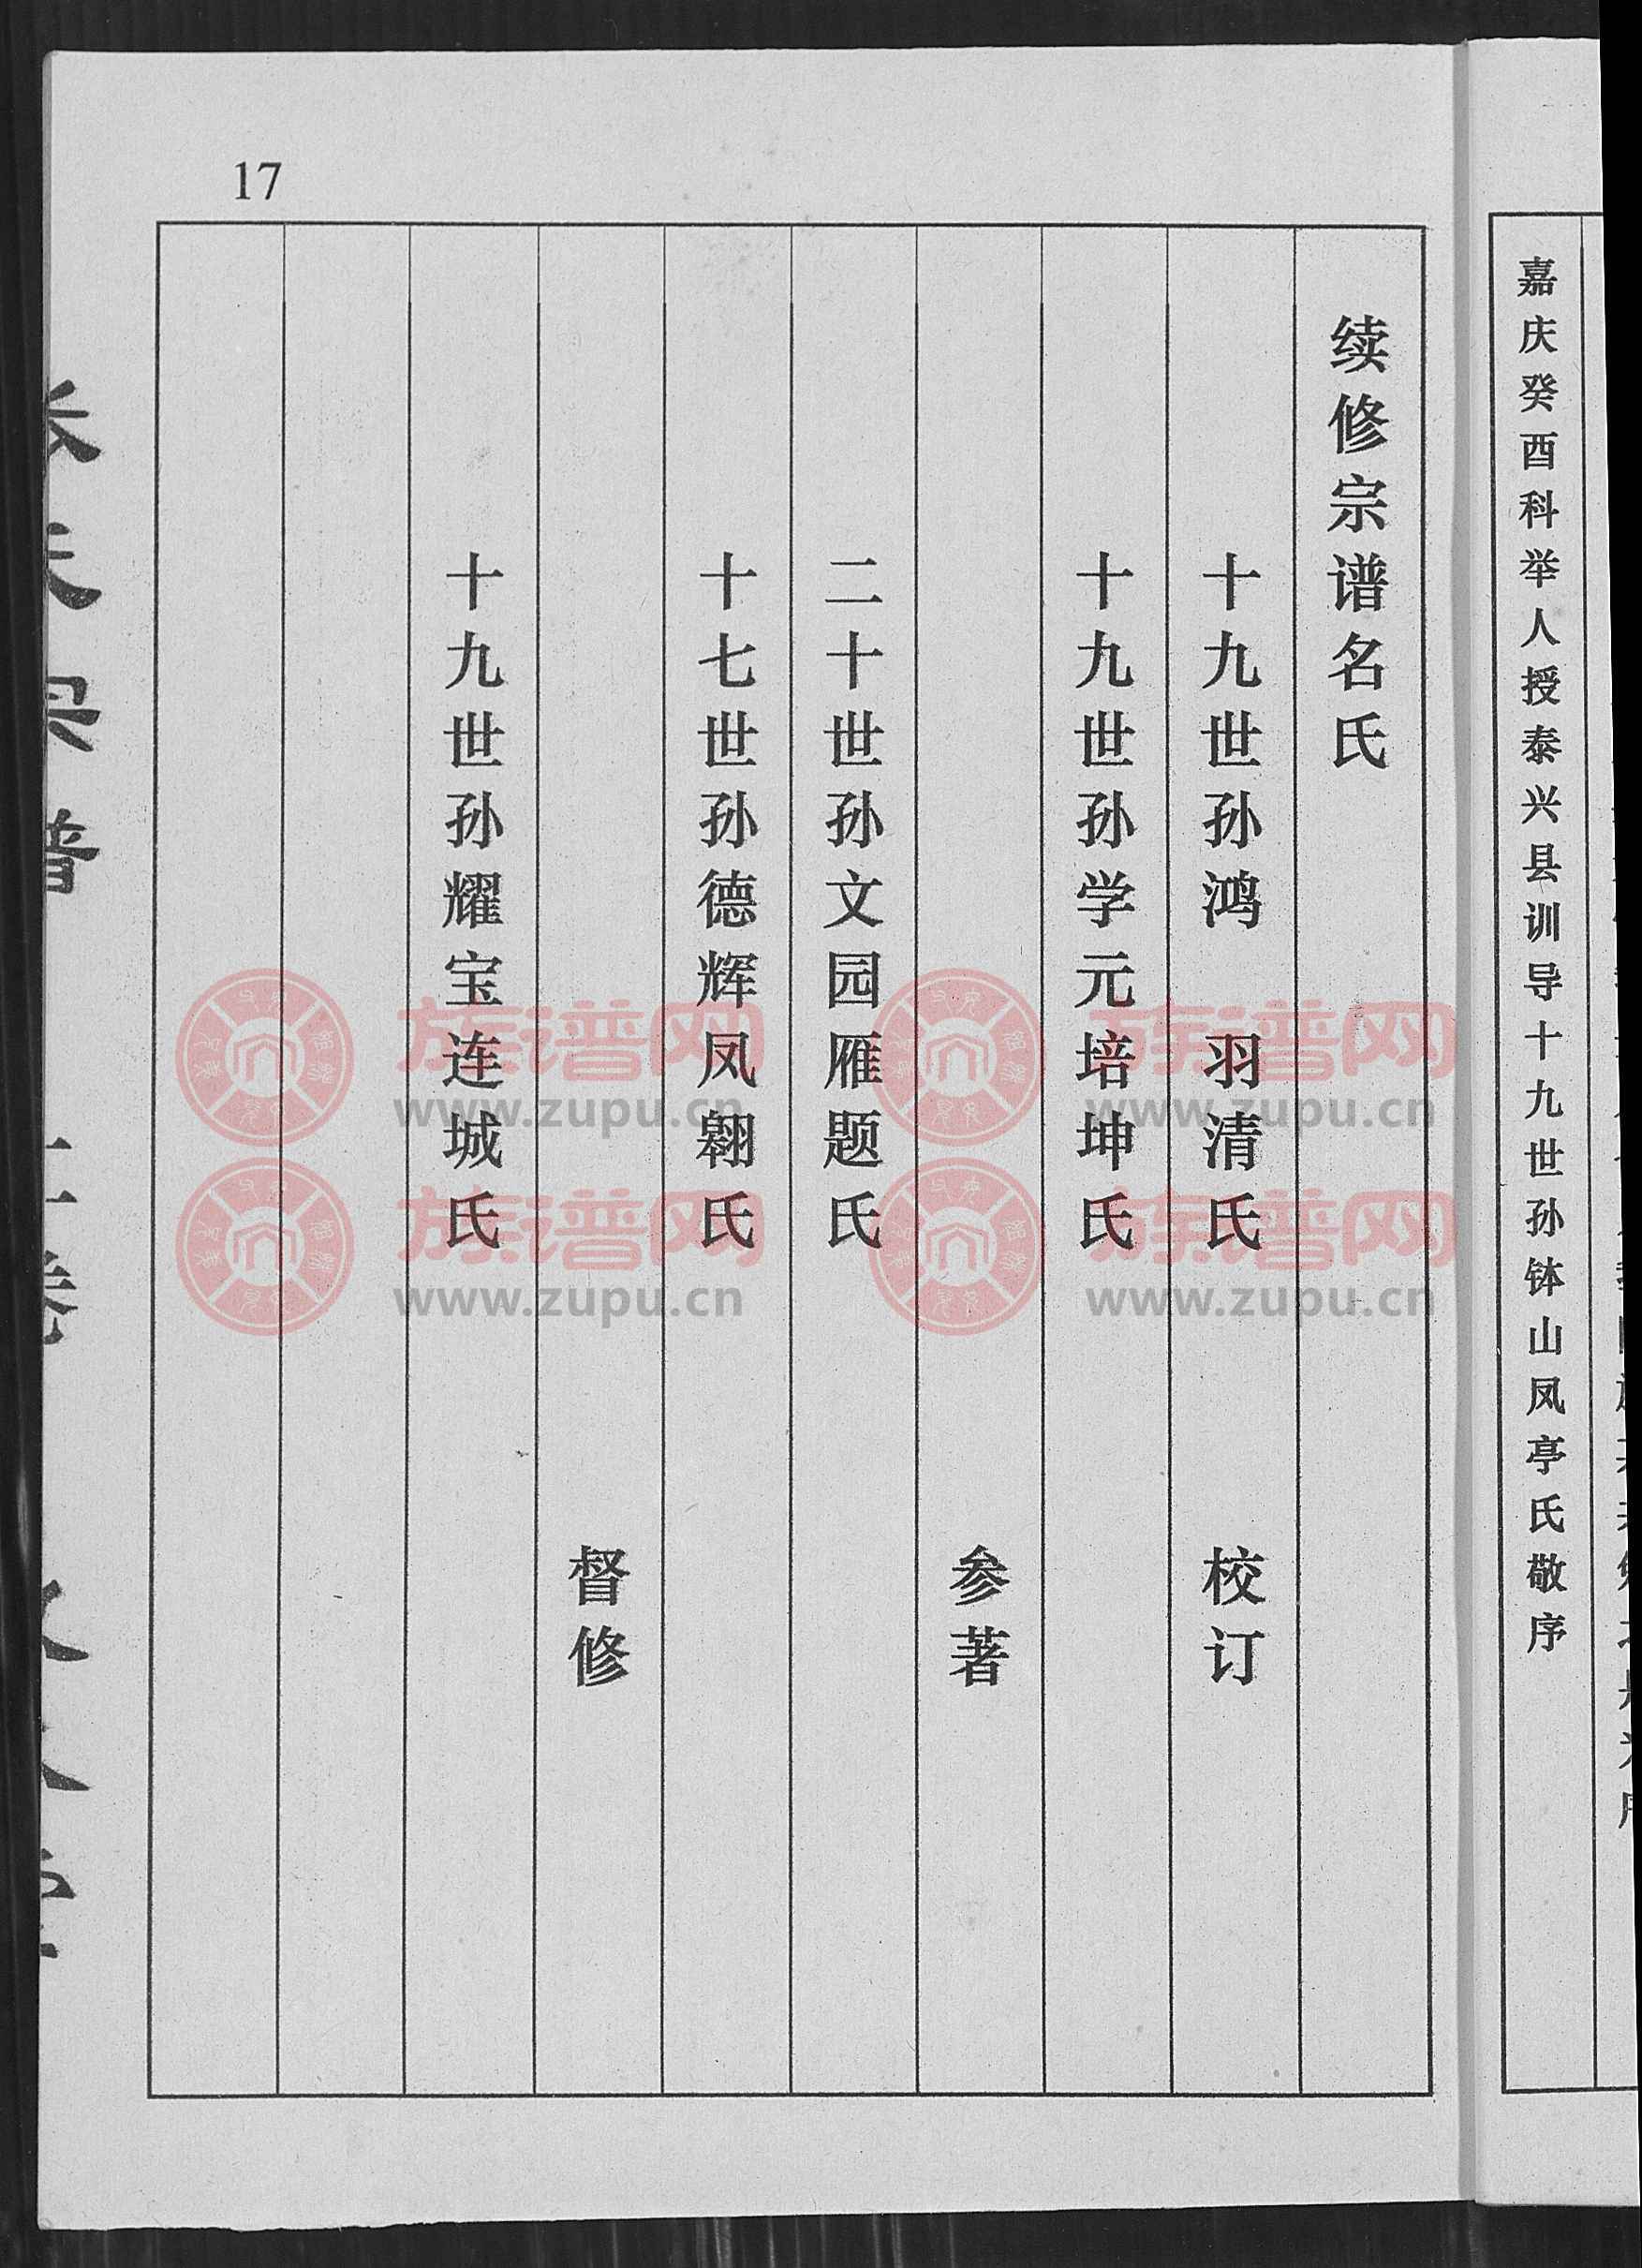 嘉庆癸酉科举人授泰兴县训导十九世孙钵山凤亭氏敬序
17
续修宗谱名氏
十九世孙鸿　羽清氏　校订
十九世孙学元培坤氏
参著
二十世孙文园雁题氏
十七世孙德辉凤翱氏
督修
十九世孙耀宝连城氏
族谱网
www.zupu.cn
族谱网
www.zupu.cn
族谱网
www.zupu.cn
族谱网
www.zupu.cn